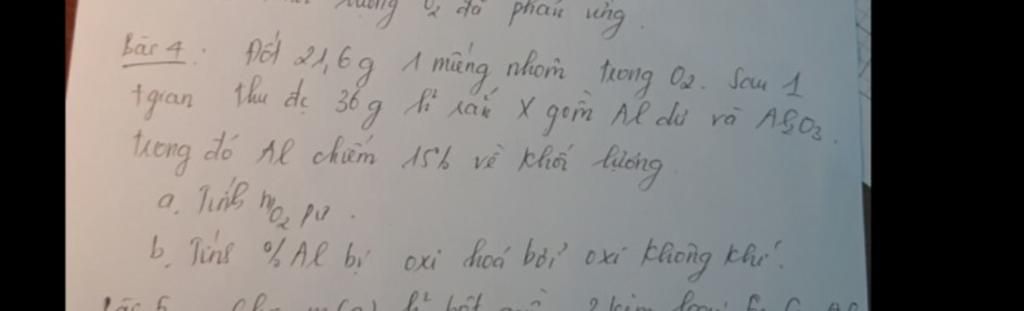 lượng O2 đã phản ứng.
Bài 4: Đốt 21,6g 1 miếng nhôm trong O2. Sau 1
tgian thu đc 36g h² rắn X gồm Al dư và Al2O3.
trong đó Al chiếm 15% về khối lượng
a. Tính mO2 pư.
b. Tính %Al bị oxi hoá bởi oxi không khí.